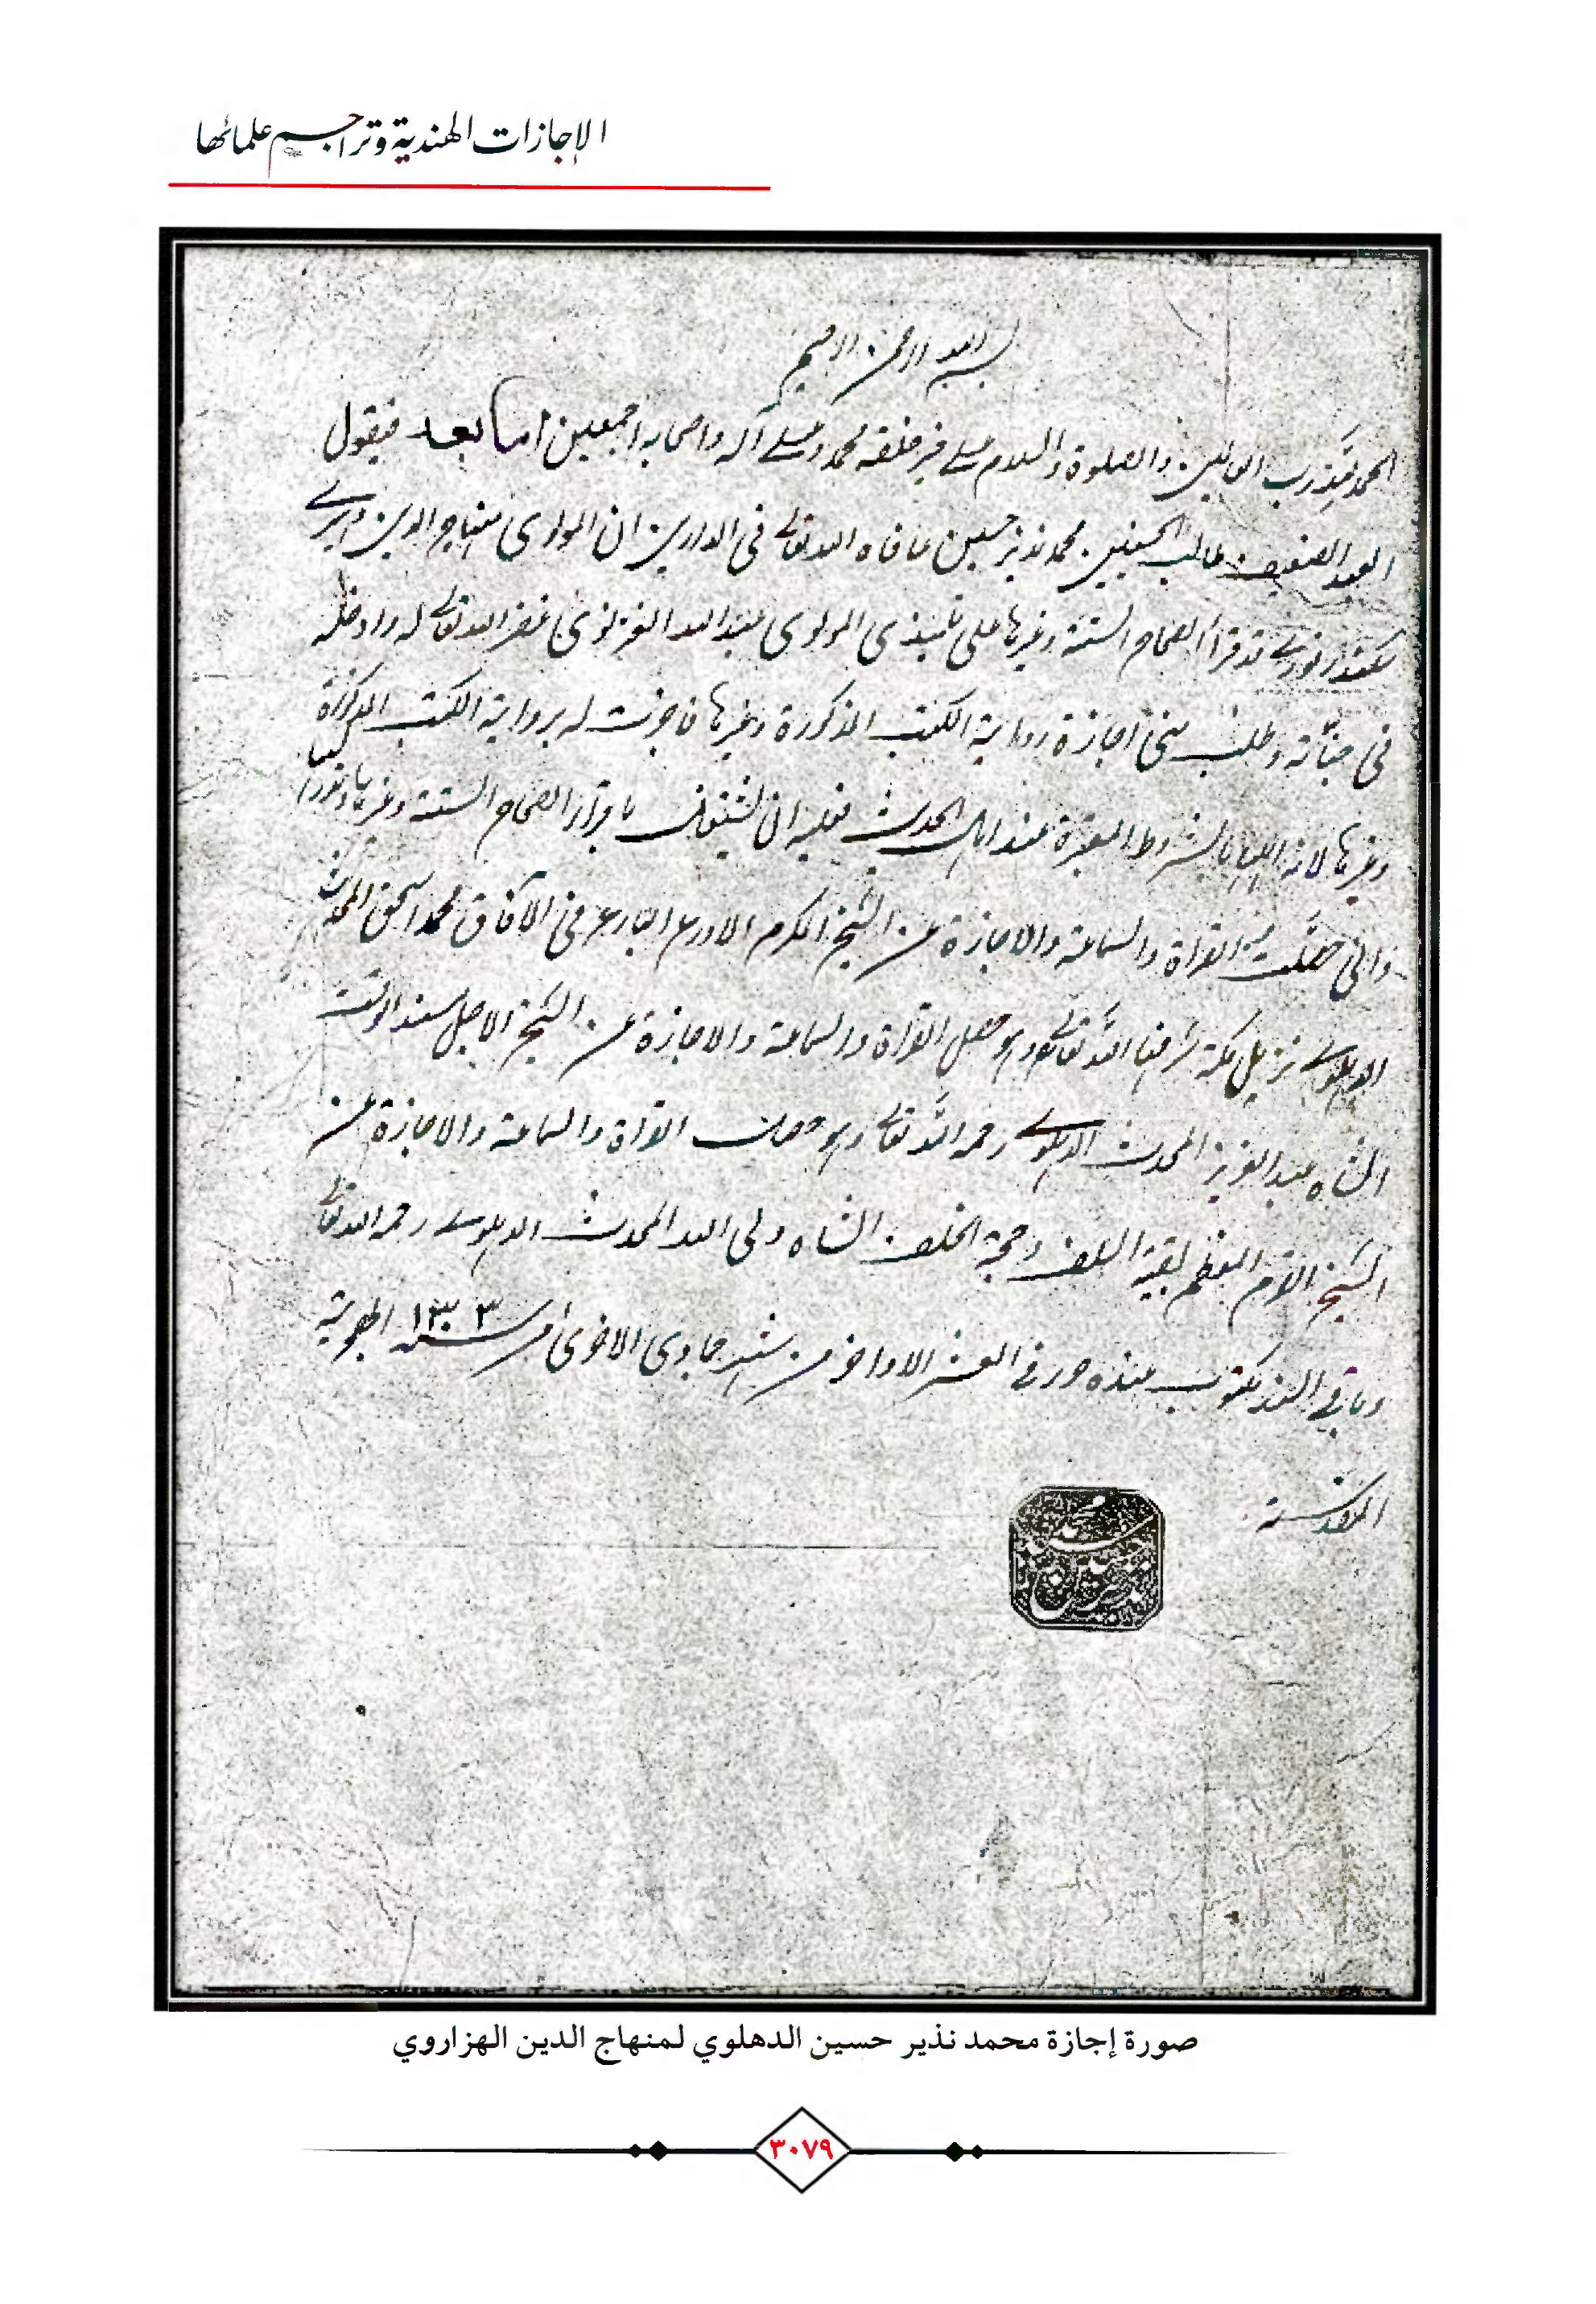 الإجازات الهندية وتراجم علمائها
بسم الله الرحمن الرحيم
الحمد لله رب العالمين والصلوة والسلام على خير خلقه محمد وعلى آله واصحابه اجمعين اما بعد فيقول
العبد الضعيف طالب الحسنيين محمد نذير حسين عافاه الله تعالى في الدارين ان المولوي منهاج الدين
سكندرفوري قد قرأ الصحاح الستة وغيرها على تلميذي المولوي عبد الله الغزنوي غفر الله تعالى له وادخله
في جناته وطلب مني اجازة رواية الكتب المذكورة وغيرها فاجزت له برواية الكتب المذكورة
وغيرها لانه اهلها بالشروط المعتبرة عند اهل الحديث فعليه ان يشتغل باقراء الصحاح الستة وغيرها
واني حصلت القراة والسماعة والاجازة عن الشيخ المكرم الاورع البارع في الآفاق محمد اسحق المحدث
الدهلوي نزيل مكة شرفها الله تعالى وهو حصل القراة والسماعة والاجازة عن الشيخ الاجل مسند الوقت
الشاه عبد العزيز المحدث الدهلوي رحمه الله تعالى وهو حصل القراة والسماعة والاجازة عن
الشيخ القرم المعظم بقية السلف وحجة الخلف الشاه ولي الله المحدث الدهلوي رحمه الله تعالى
وباقي السند مكتوب عنده حرر في العشر الاواخر من شهر جمادى الاخرى من سنة ١٣٠٣ الهجرية
المقدسة
محمد نذير حسين
صورة إجازة محمد نذير حسين الدهلوي لمنهاج الدين الهزاروي
٣٠٧٩